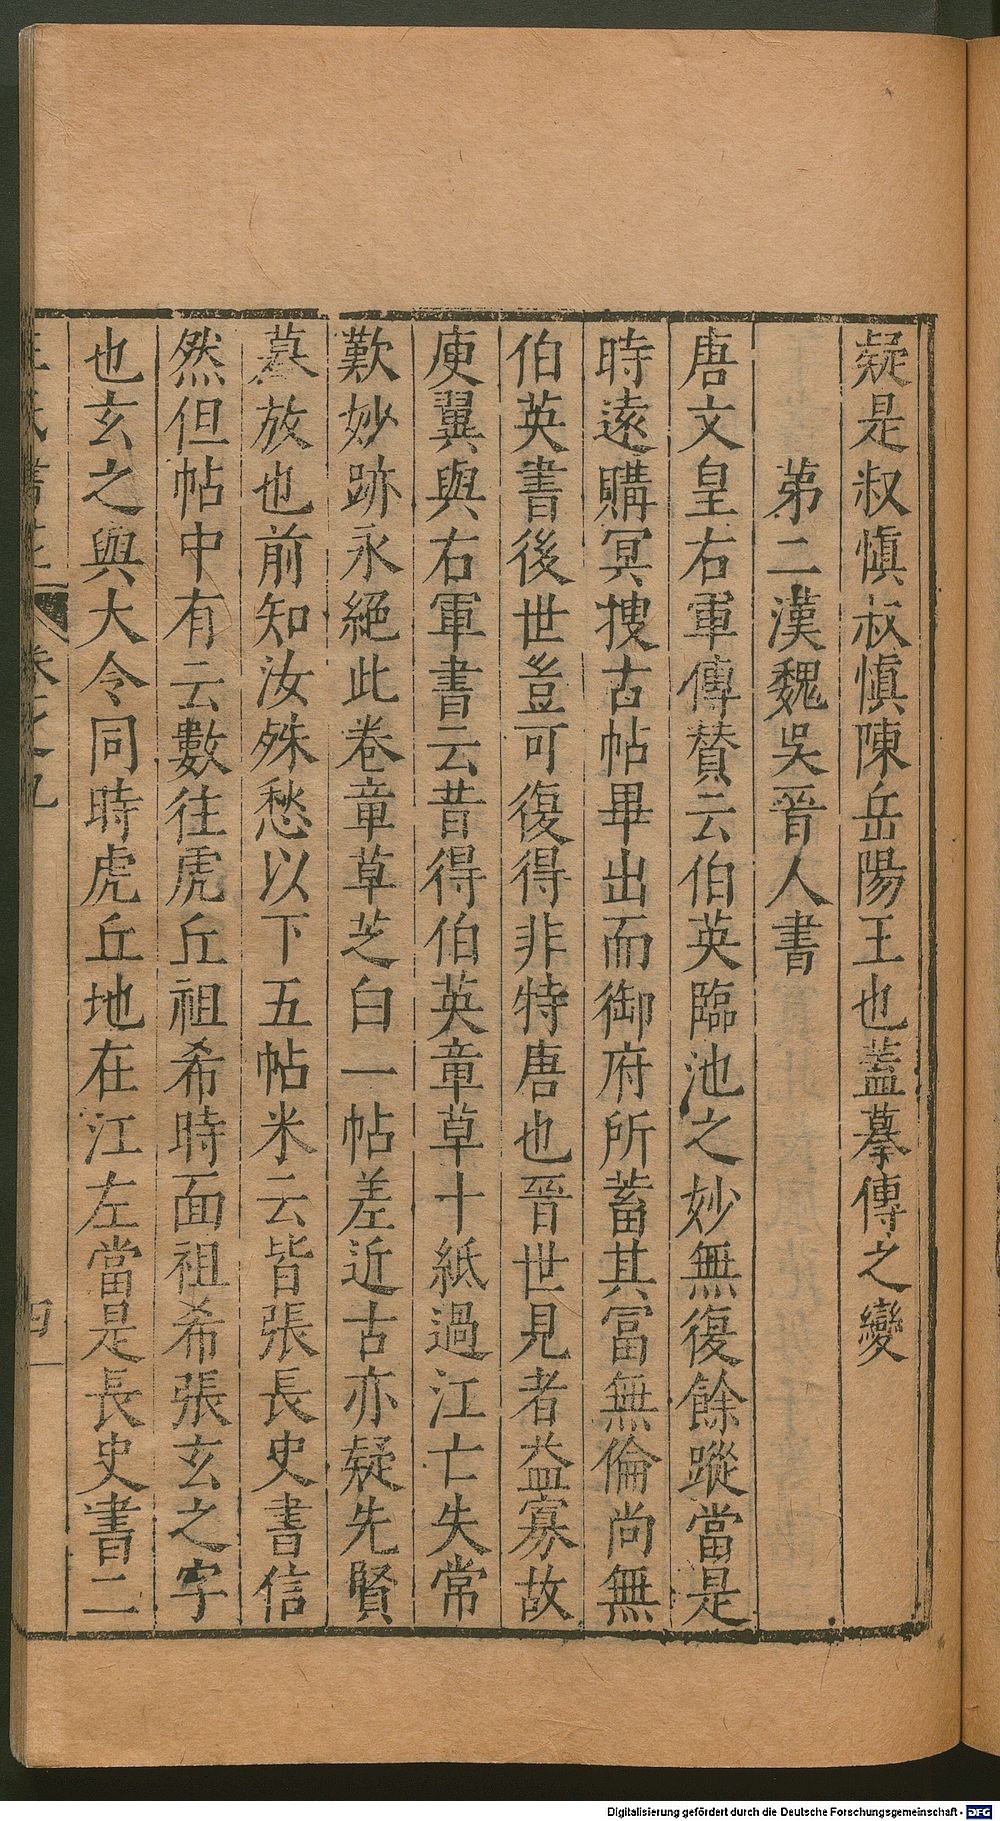 疑是叔慎叔慎陳岳陽王也蓋摹傳之變
第二漢魏吳晉人書
唐文皇右軍傳賛云伯英臨池之妙無復餘蹤當是
時遠購冥搜古帖畢出而御府所蓄其冨無倫尚無
伯英書後世豈可復得非特唐也晉世見者益寡故
庾翼與右軍書云昔得伯英章草十紙過江亡失常
歎妙跡永絕此卷章草芝白一帖差近古亦疑先賢
摹放也前知汝殊愁以下五帖米云皆張長史書信
然但帖中有云數往虎丘祖希時面祖希張玄之字
也玄之與大令同時虎丘地在江左當是長史書二
卷之九
四
Digitalisierung gefördert durch die Deutsche Forschungsgemeinschaft - DFG